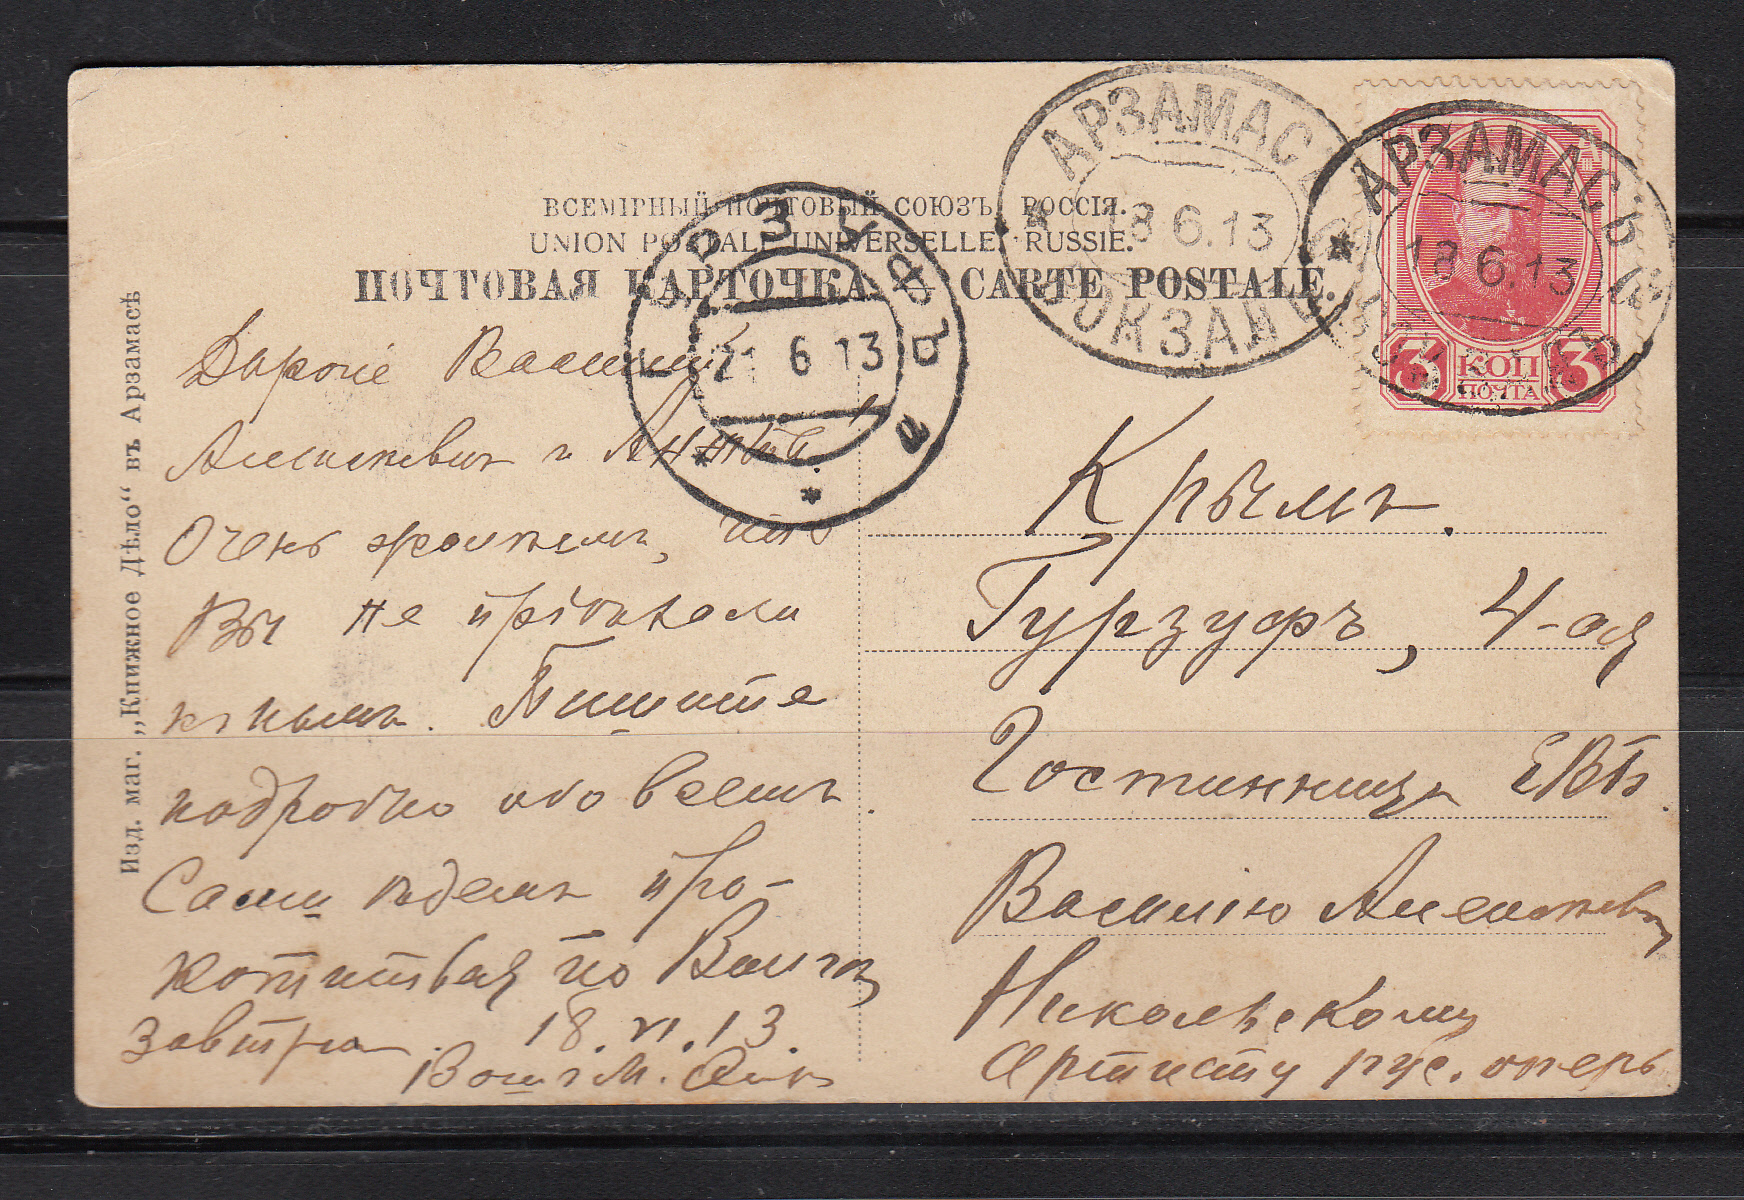 ВСЕМІРНЫЙ ПОЧТОВЫЙ СОЮЗЪ. РОССІЯ.
UNION POSTALE UNIVERSELLE. RUSSIE.
ПОЧТОВАЯ КАРТОЧКА. — CARTE POSTALE.
АРЗАМАСЪ
18 6.13
ВОКЗАЛЪ
АРЗАМАСЪ
18 6.13
ВОКЗАЛЪ
3 КОП 3
ПОЧТА
ГУРЗУФЪ
21 6 13
Изд. маг. „Книжное Дѣло“ въ Арзамасѣ
Дорогіе Василій
Алексѣевичъ и
Очень жалѣемъ, что
Вы не пріѣхали
къ намъ. Пишите
подробно обо всемъ.
Сами ѣдемъ про-
катиться по Волгѣ
завтра. 18.VI.13.
Ваш М.
Крымъ.
Гурзуфъ, 4-ая
Гостинница ЕВБ.
Василію Алексѣевичу
Никольскому
Артисту рус. оперы